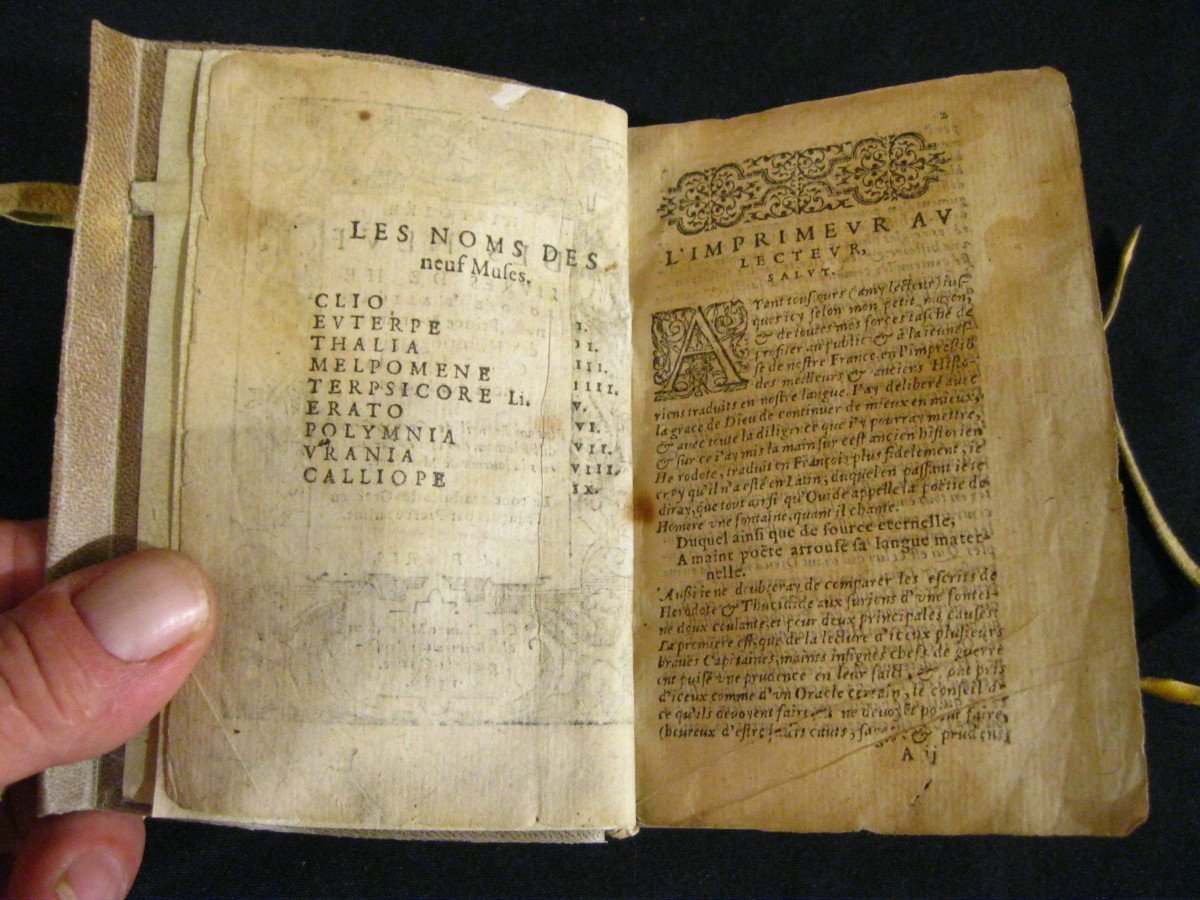 LES NOMS DES
neuf Muſes.
CLIO I.
EVTERPE II.
THALIA III.
MELPOMENE IIII.
TERPSICORE Li. V.
ERATO VI.
POLYMNIA VII.
VRANIA VIII.
CALLIOPE IX.
2
L'IMPRIMEVR AV
LECTEVR,
SALVT.
AYant touſ-ours (amy lecteur) iuſ-
ques icy ſelon mon petit moyen,
& de toutes mes forces taſché de
profiter au public & à la ieuneſ-
ſe de noſtre France, en l'impreſſiõ
des meilleurs & anciens Hiſto-
riens traduits en noſtre langue. I'ay deliberé auec
la grace de Dieu de continuer de mieux en mieux,
& auec toute la diligence que i'y pourray mettre,
& ſur ce i'ay mis la main ſur ceſt ancien hiſtorien
Herodote, traduit en François plus fidelement, ie
croy qu'il n'a eſté en Latin, duquel en paſſant ie te
diray, que tout ainſi qu'Ouide appelle la poëtie de
Homere vne fontaine, quant il chante.
Duquel ainſi que de ſource eternelle,
A maint poëte arrouſé ſa langue mater-
nelle.
Auſsi ie ne doubteray de comparer les eſcrits de
Herodote & Thucidide aux ſurjens d'vne fontei-
ne doux coulante, et pour deux principales cauſes:
La premiere eſt, que de la lecture d'iceux pluſieurs
braues Capitaines, maints inſignes chefs de guerre
ont puiſé vne prudence en leur faict, & ont pris
d'iceux comme d'vn Oracle certain, le conſeil de
ce qu'ils devoyent faire, & ne devoyẽt point faire,
(heureux d'eſtre faicts cauts, & prudens
A ij